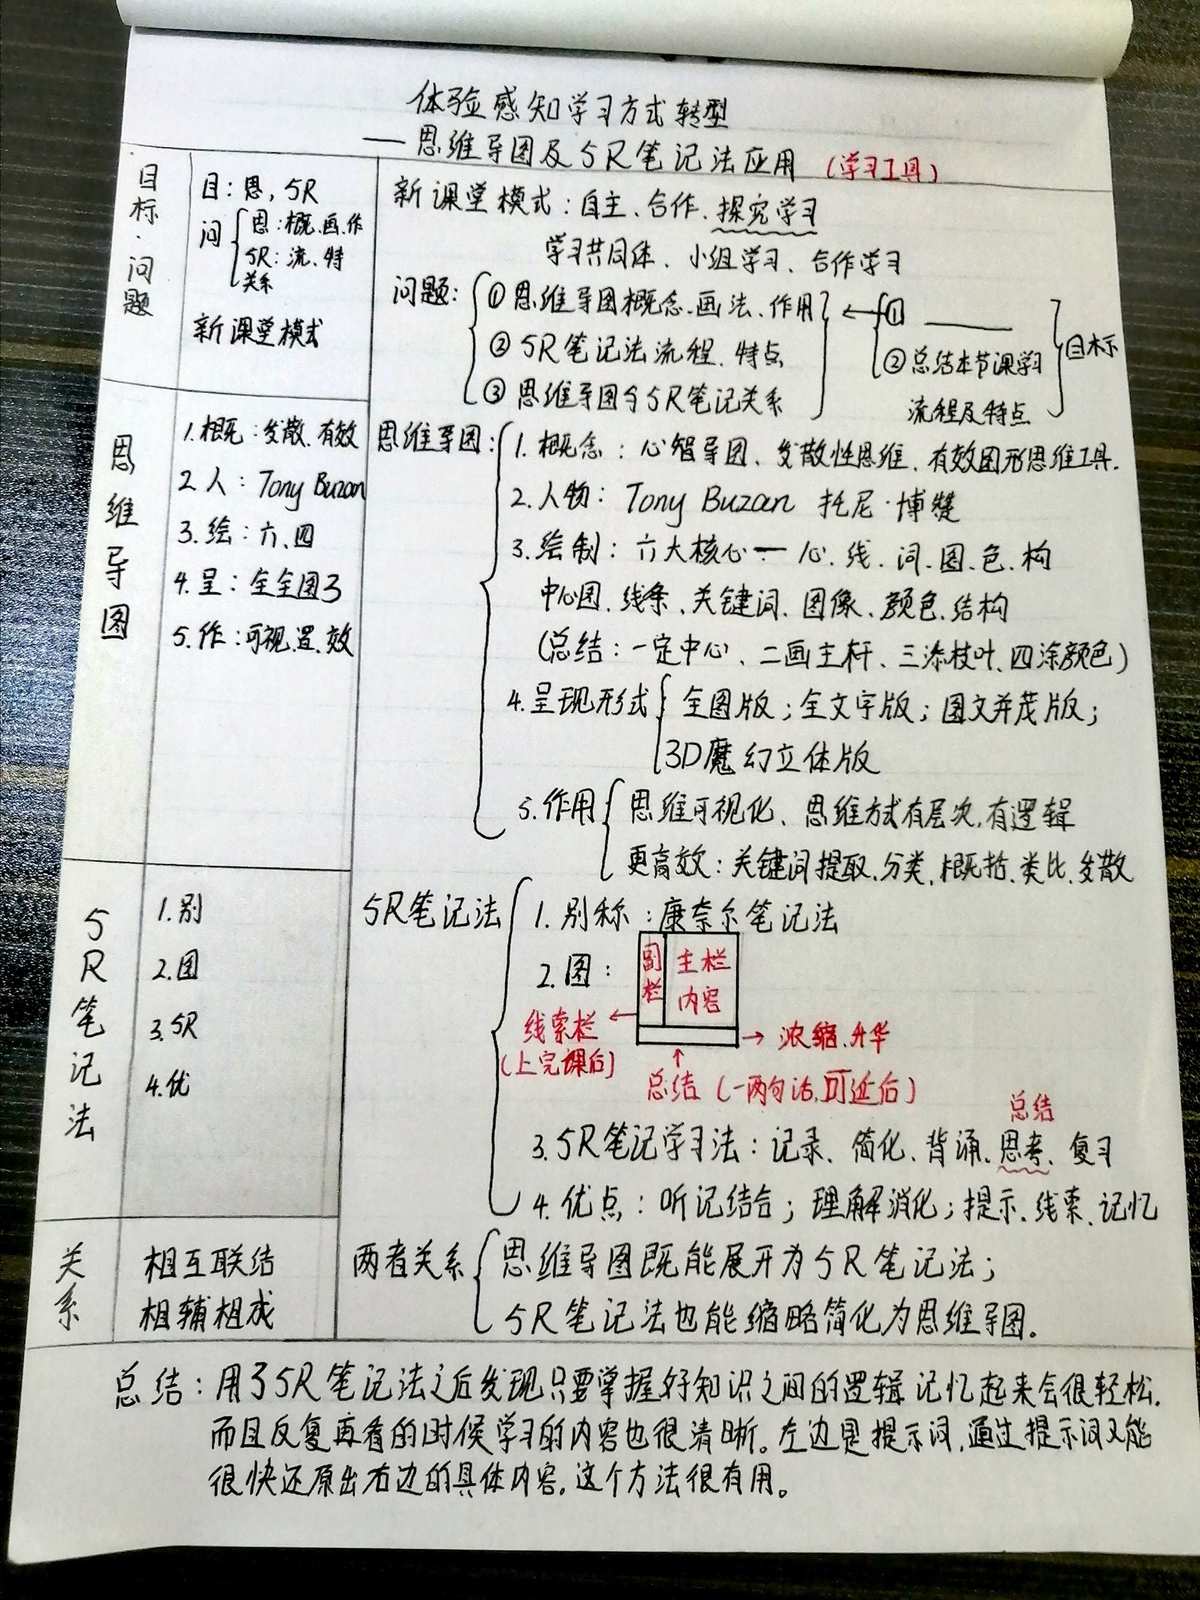 体验感知学习方式转型
——思维导图及5R笔记法应用 (学习工具)
目标·问题
目：思，5R
问 思：概、画、作
5R：流、特
关系
新课堂模式
新课堂模式：自主、合作、探究学习
学习共同体、小组学习、合作学习
问题：①思维导图概念、画法、作用
②5R笔记法流程、特点
③思维导图与5R笔记关系
① ______
②总结本节课学习
流程及特点
目标
思维导图
1.概：发散、有效
2.人：Tony Buzan
3.绘：六、四
4.呈：全全图3
5.作：可视、置、效
思维导图：1.概念：心智导图、发散性思维、有效图形思维工具.
2.人物：Tony Buzan 托尼·博赞
3.绘制：六大核心—心、线、词、图、色、构
中心图、线条、关键词、图像、颜色、结构
(总结：一定中心、二画主杆、三添枝叶、四涂颜色)
4.呈现形式 全图版；全文字版；图文并茂版；
3D魔幻立体版
5.作用 思维可视化、思维方式有层次，有逻辑
更高效：关键词提取、分类、概括、类比、发散
5R笔记法
1.别
2.图
3.5R
4.优
5R笔记法 1.别称：康奈尔笔记法
2.图：
副栏
主栏
内容
线索栏
(上完课后)
浓缩、升华
总结(一两句话，可延后)
总结
3.5R笔记学习法：记录、简化、背诵、思考、复习
4.优点：听记结合；理解消化；提示、线索、记忆
关系
相互联结
相辅相成
两者关系 思维导图既能展开为5R笔记法；
5R笔记法也能缩略简化为思维导图.
总结：用了5R笔记法之后发现只要掌握好知识之间的逻辑 记忆起来会很轻松.
而且反复再看的时候学习的内容也很清晰。左边是提示词，通过提示词又能
很快还原出右边的具体内容，这个方法很有用。